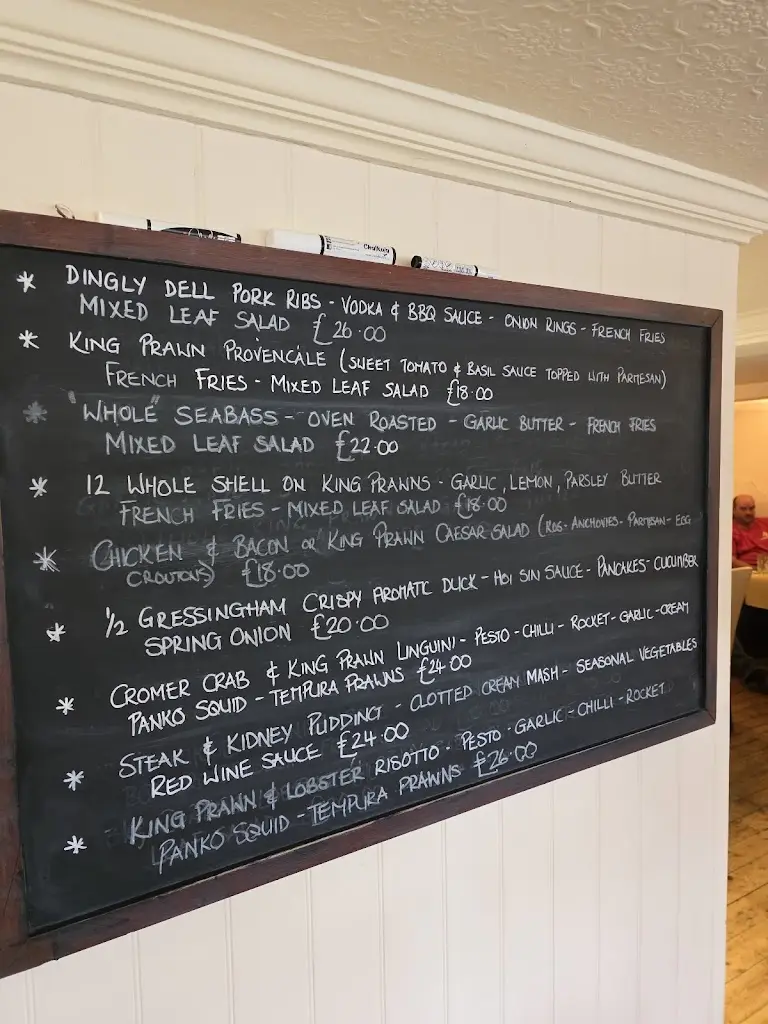 * DINGLY DELL PORK RIBS - VODKA & BBQ SAUCE - ONION RINGS - FRENCH FRIES
MIXED LEAF SALAD £26.00
* KING PRAWN PROVENCALE (SWEET TOMATO & BASIL SAUCE TOPPED WITH PARMESAN)
FRENCH FRIES - MIXED LEAF SALAD £18.00
* "WHOLE" SEABASS - OVEN ROASTED - GARLIC BUTTER - FRENCH FRIES
MIXED LEAF SALAD £22.00
* 12 WHOLE SHELL ON KING PRAWNS - GARLIC, LEMON, PARSLEY BUTTER
FRENCH FRIES - MIXED LEAF SALAD £18.00
* CHICKEN & BACON or KING PRAWN CAESAR SALAD (COS - ANCHOVIES - PARMESAN - EGG
CROUTONS) £18.00
* 1/2 GRESSINGHAM CRISPY AROMATIC DUCK - HOI SIN SAUCE - PANCAKES - CUCUMBER
SPRING ONION £20.00
* CROMER CRAB & KING PRAWN LINGUINI - PESTO - CHILLI - ROCKET - GARLIC - CREAM
PANKO SQUID - TEMPURA PRAWNS £24.00
* STEAK & KIDNEY PUDDING - CLOTTED CREAM MASH - SEASONAL VEGETABLES
RED WINE SAUCE £24.00
* KING PRAWN & LOBSTER RISOTTO - PESTO - GARLIC - CHILLI - ROCKET
PANKO SQUID - TEMPURA PRAWNS £26.00